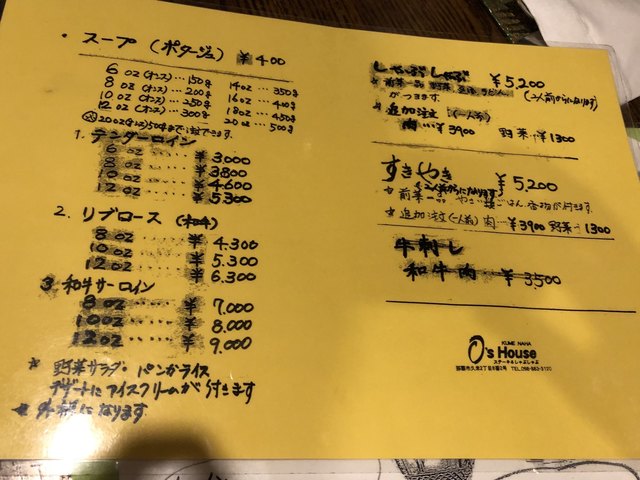 ・ スープ (ポタージュ) ¥400
6 oz (オンス)…150g 14 oz…350g
8 oz (オンス)…200g 16 oz…400g
10 oz (オンス)…250g 18 oz…450g
12 oz (オンス)…300g 20 oz…500g
1. テンダーロイン
6 oz …… ¥3000
8 oz …… ¥3800
10 oz …… ¥4600
12 oz …… ¥5300
2. リブロース
8 oz …… ¥4.300
10 oz …… ¥5.300
12 oz …… ¥6.300
3. 和牛サーロイン
8 oz …… ¥7.000
10 oz …… ¥8.000
12 oz …… ¥9.000
* 野菜サラダ・パンかライス
デザートにアイスクリームが付きます
* 外税になります
しゃぶしゃぶ ¥5,200
前菜一品 野菜 (2人前からになります)
がつきます。
* 追加注文 (一人前)
肉…¥3900 野菜…¥1300
すきやき ¥5,200
(2人前からになります)
* 前菜一品 やさい ごはん、香物が付きます。
* 追加注文(一人前) 肉…¥3900 野菜…1300
牛刺し
和牛肉 ¥3500
KUME NAHA
O's House
ステーキ&しゃぶしゃぶ
那覇市久米2丁目 TEL.098-862-3120